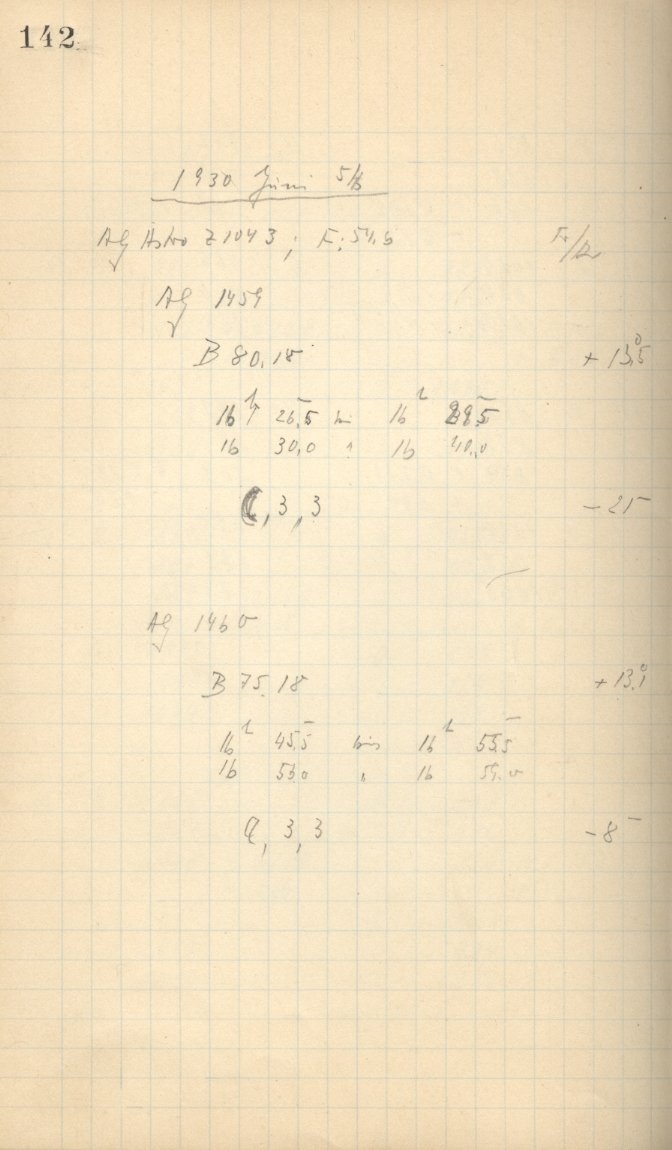 142
1930 Juni 5/6
AG Astro Z 1043 ; F: 54,6
AG 1459
B 80,18 + 13,5
16h 26,5 bis 16h
16 30,0 " 16 40,0
, 3 , 3 - 25
AG 1460
B 75,18 + 13,1
16h 45,5 bis 16h 55,5
16 " 16
, 3 , 3 - 8